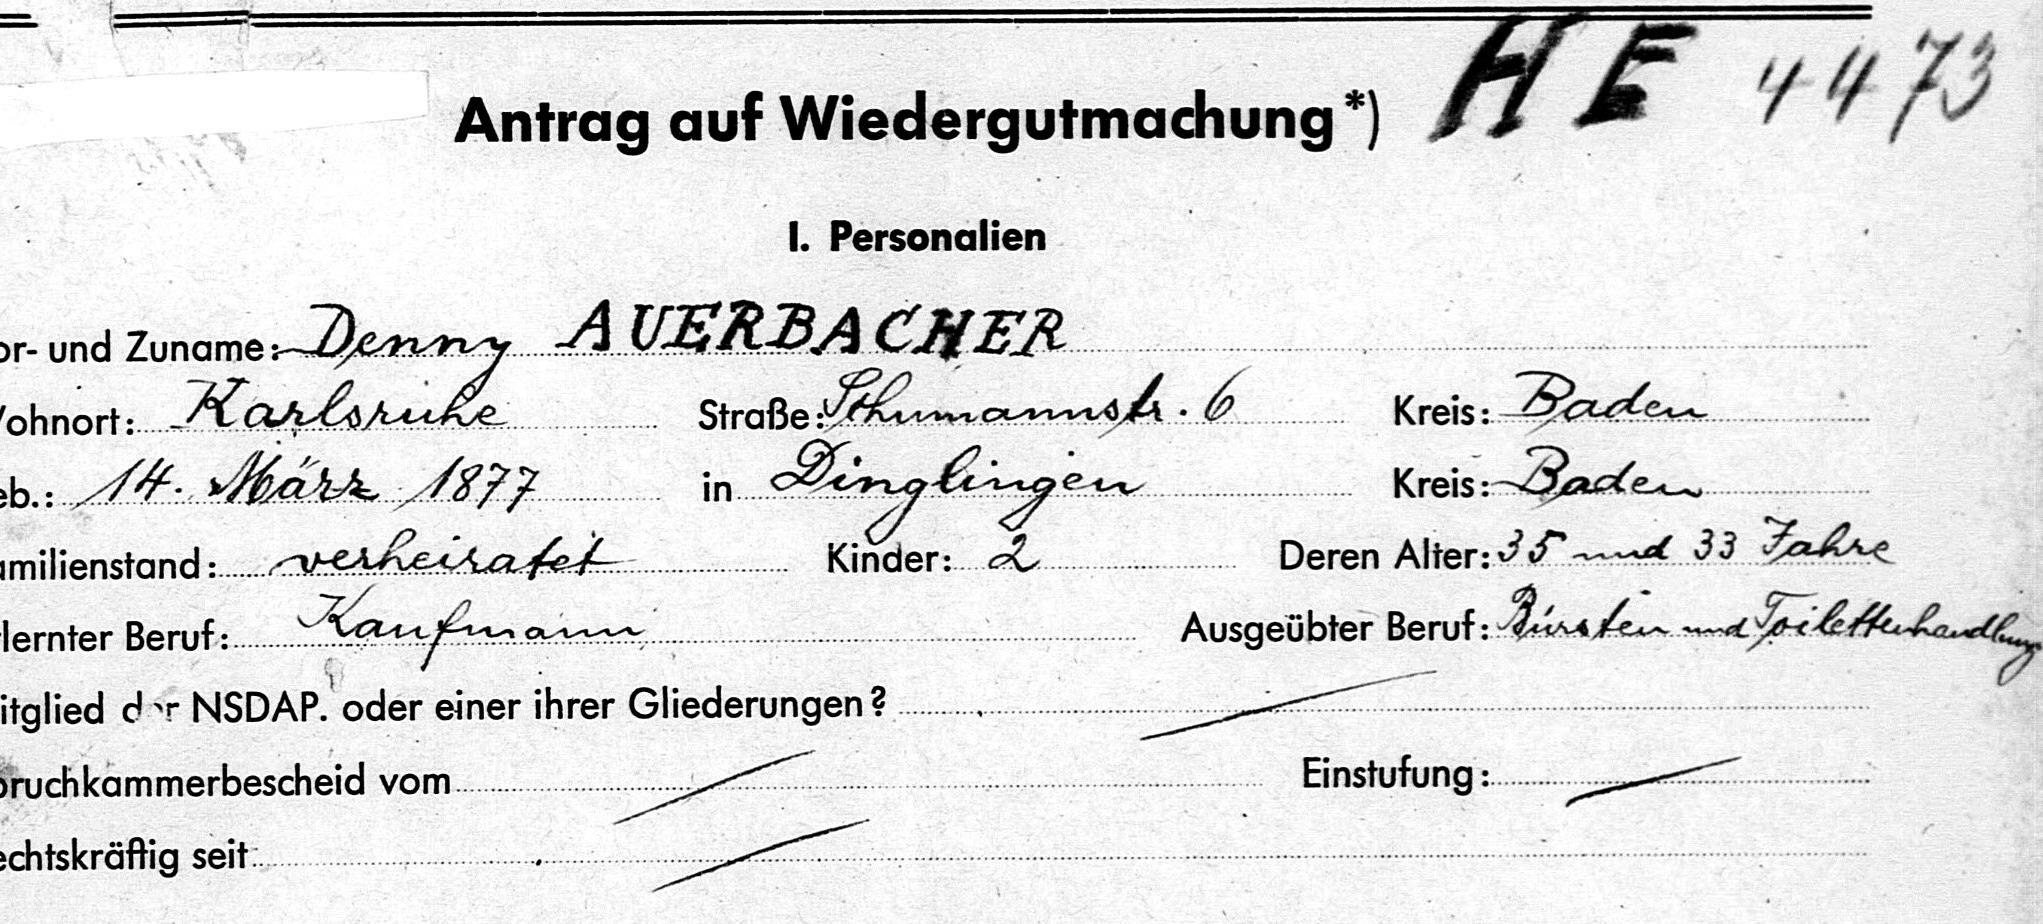 Antrag auf Wiedergutmachung*) HE 4473
I. Personalien
or- und Zuname: Denny AUERBACHER
Wohnort: Karlsruhe Straße: Schumannstr. 6 Kreis: Baden
eb.: 14. März 1877 in Dinglingen Kreis: Baden
amilienstand: verheiratet Kinder: 2 Deren Alter: 35 und 33 Jahre
lernter Beruf: Kaufmann Ausgeübter Beruf: Bürsten und Toilettenhandlung
itglied der NSDAP. oder einer ihrer Gliederungen?
pruchkammerbescheid vom Einstufung:
echtskräftig seit